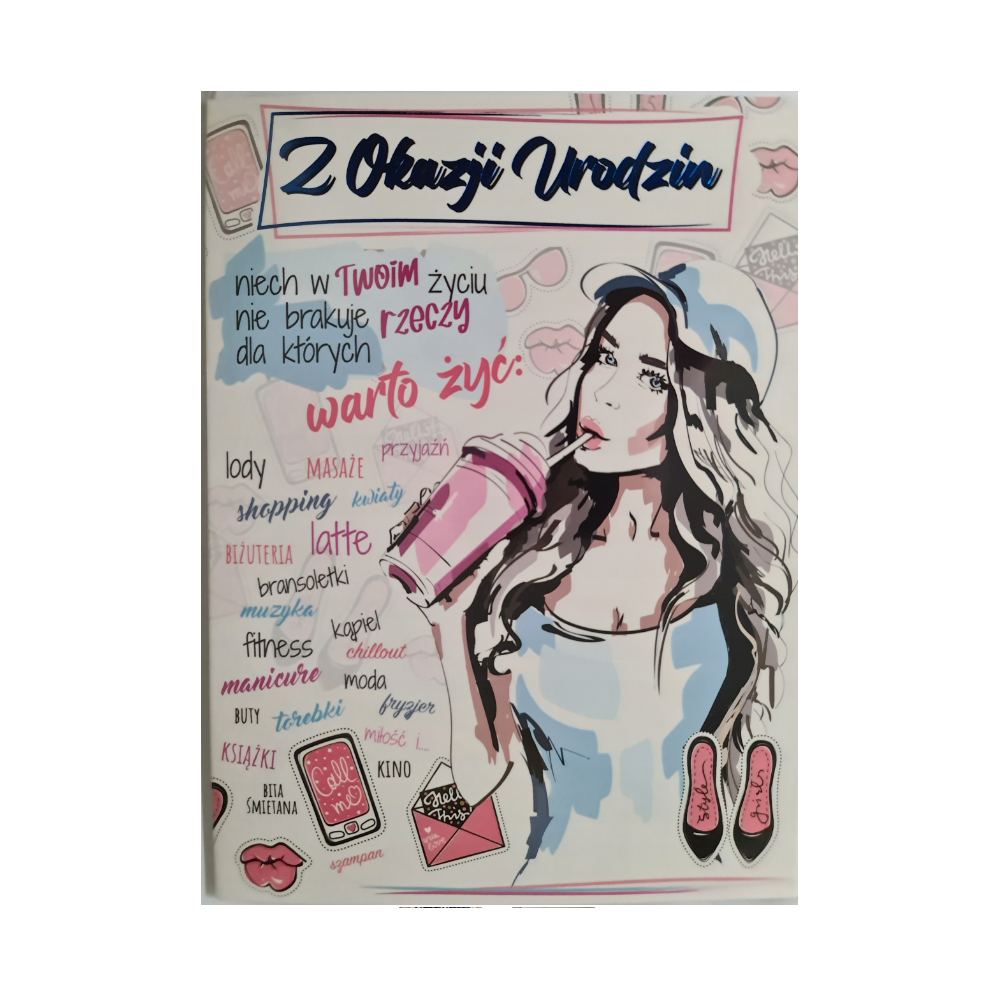 Z Okazji Urodzin
niech w TWOIM życiu
nie brakuje rzeczy
dla których
warto żyć:
przyjaźń
lody MASAŻE
shopping kwiaty
BIŻUTERIA latte
bransoletki
muzyka
fitness kąpiel
chillout
manicure moda
BUTY torebki fryzjer
miłość i...
KSIĄŻKI KINO
BITA
ŚMIETANA
szampan
Call
me
Hello
This
Style
girl
Call
me
Hello
This